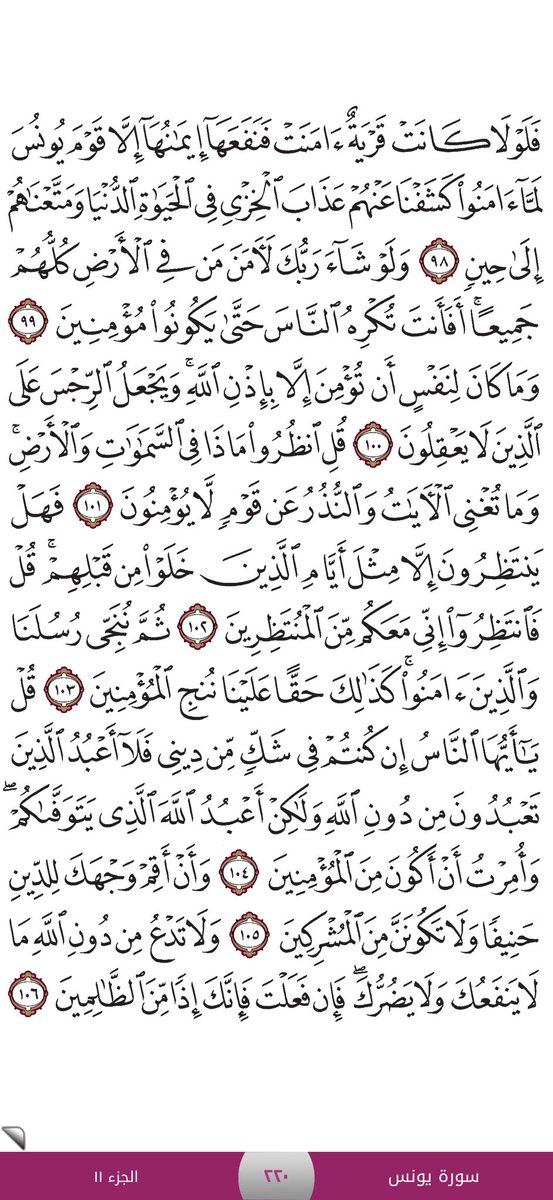 فَلَوْلَا كَانَتْ قَرْيَةٌ ءَامَنَتْ فَنَفَعَهَآ إِيمَٰنُهَآ إِلَّا قَوْمَ يُونُسَ
لَمَّآ ءَامَنُوا۟ كَشَفْنَا عَنْهُمْ عَذَابَ ٱلْخِزْىِ فِى ٱلْحَيَوٰةِ ٱلدُّنْيَا وَمَتَّعْنَٰهُمْ
إِلَىٰ حِينٍ ٩٨ وَلَوْ شَآءَ رَبُّكَ لَـَٔامَنَ مَن فِى ٱلْأَرْضِ كُلُّهُمْ
جَمِيعًا ۚ أَفَأَنتَ تُكْرِهُ ٱلنَّاسَ حَتَّىٰ يَكُونُوا۟ مُؤْمِنِينَ ٩٩
وَمَا كَانَ لِنَفْسٍ أَن تُؤْمِنَ إِلَّا بِإِذْنِ ٱللَّهِ ۚ وَيَجْعَلُ ٱلرِّجْسَ عَلَى
ٱلَّذِينَ لَا يَعْقِلُونَ ١٠٠ قُلِ ٱنظُرُوا۟ مَاذَا فِى ٱلسَّمَٰوَٰتِ وَٱلْأَرْضِ ۚ
وَمَا تُغْنِى ٱلْـَٔايَٰتُ وَٱلنُّذُرُ عَن قَوْمٍ لَّا يُؤْمِنُونَ ١٠١ فَهَلْ
يَنتَظِرُونَ إِلَّا مِثْلَ أَيَّامِ ٱلَّذِينَ خَلَوْا۟ مِن قَبْلِهِمْ ۚ قُلْ
فَٱنتَظِرُوٓا۟ إِنِّى مَعَكُم مِّنَ ٱلْمُنتَظِرِينَ ١٠٢ ثُمَّ نُنَجِّى رُسُلَنَا
وَٱلَّذِينَ ءَامَنُوا۟ ۚ كَذَٰلِكَ حَقًّا عَلَيْنَا نُنجِ ٱلْمُؤْمِنِينَ ١٠٣ قُلْ
يَٰٓأَيُّهَا ٱلنَّاسُ إِن كُنتُمْ فِى شَكٍّ مِّن دِينِى فَلَآ أَعْبُدُ ٱلَّذِينَ
تَعْبُدُونَ مِن دُونِ ٱللَّهِ وَلَٰكِنْ أَعْبُدُ ٱللَّهَ ٱلَّذِى يَتَوَفَّىٰكُمْ ۖ
وَأُمِرْتُ أَنْ أَكُونَ مِنَ ٱلْمُؤْمِنِينَ ١٠٤ وَأَنْ أَقِمْ وَجْهَكَ لِلدِّينِ
حَنِيفًا وَلَا تَكُونَنَّ مِنَ ٱلْمُشْرِكِينَ ١٠٥ وَلَا تَدْعُ مِن دُونِ ٱللَّهِ مَا
لَا يَنفَعُكَ وَلَا يَضُرُّكَ ۖ فَإِن فَعَلْتَ فَإِنَّكَ إِذًا مِّنَ ٱلظَّٰلِمِينَ ١٠٦
سورة يونس ٢٢٠ الجزء ١١